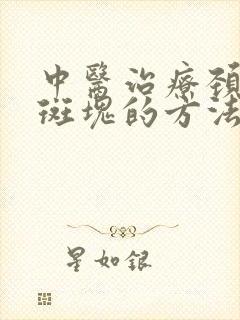 中醫治療頸
斑塊的方法
星如銀